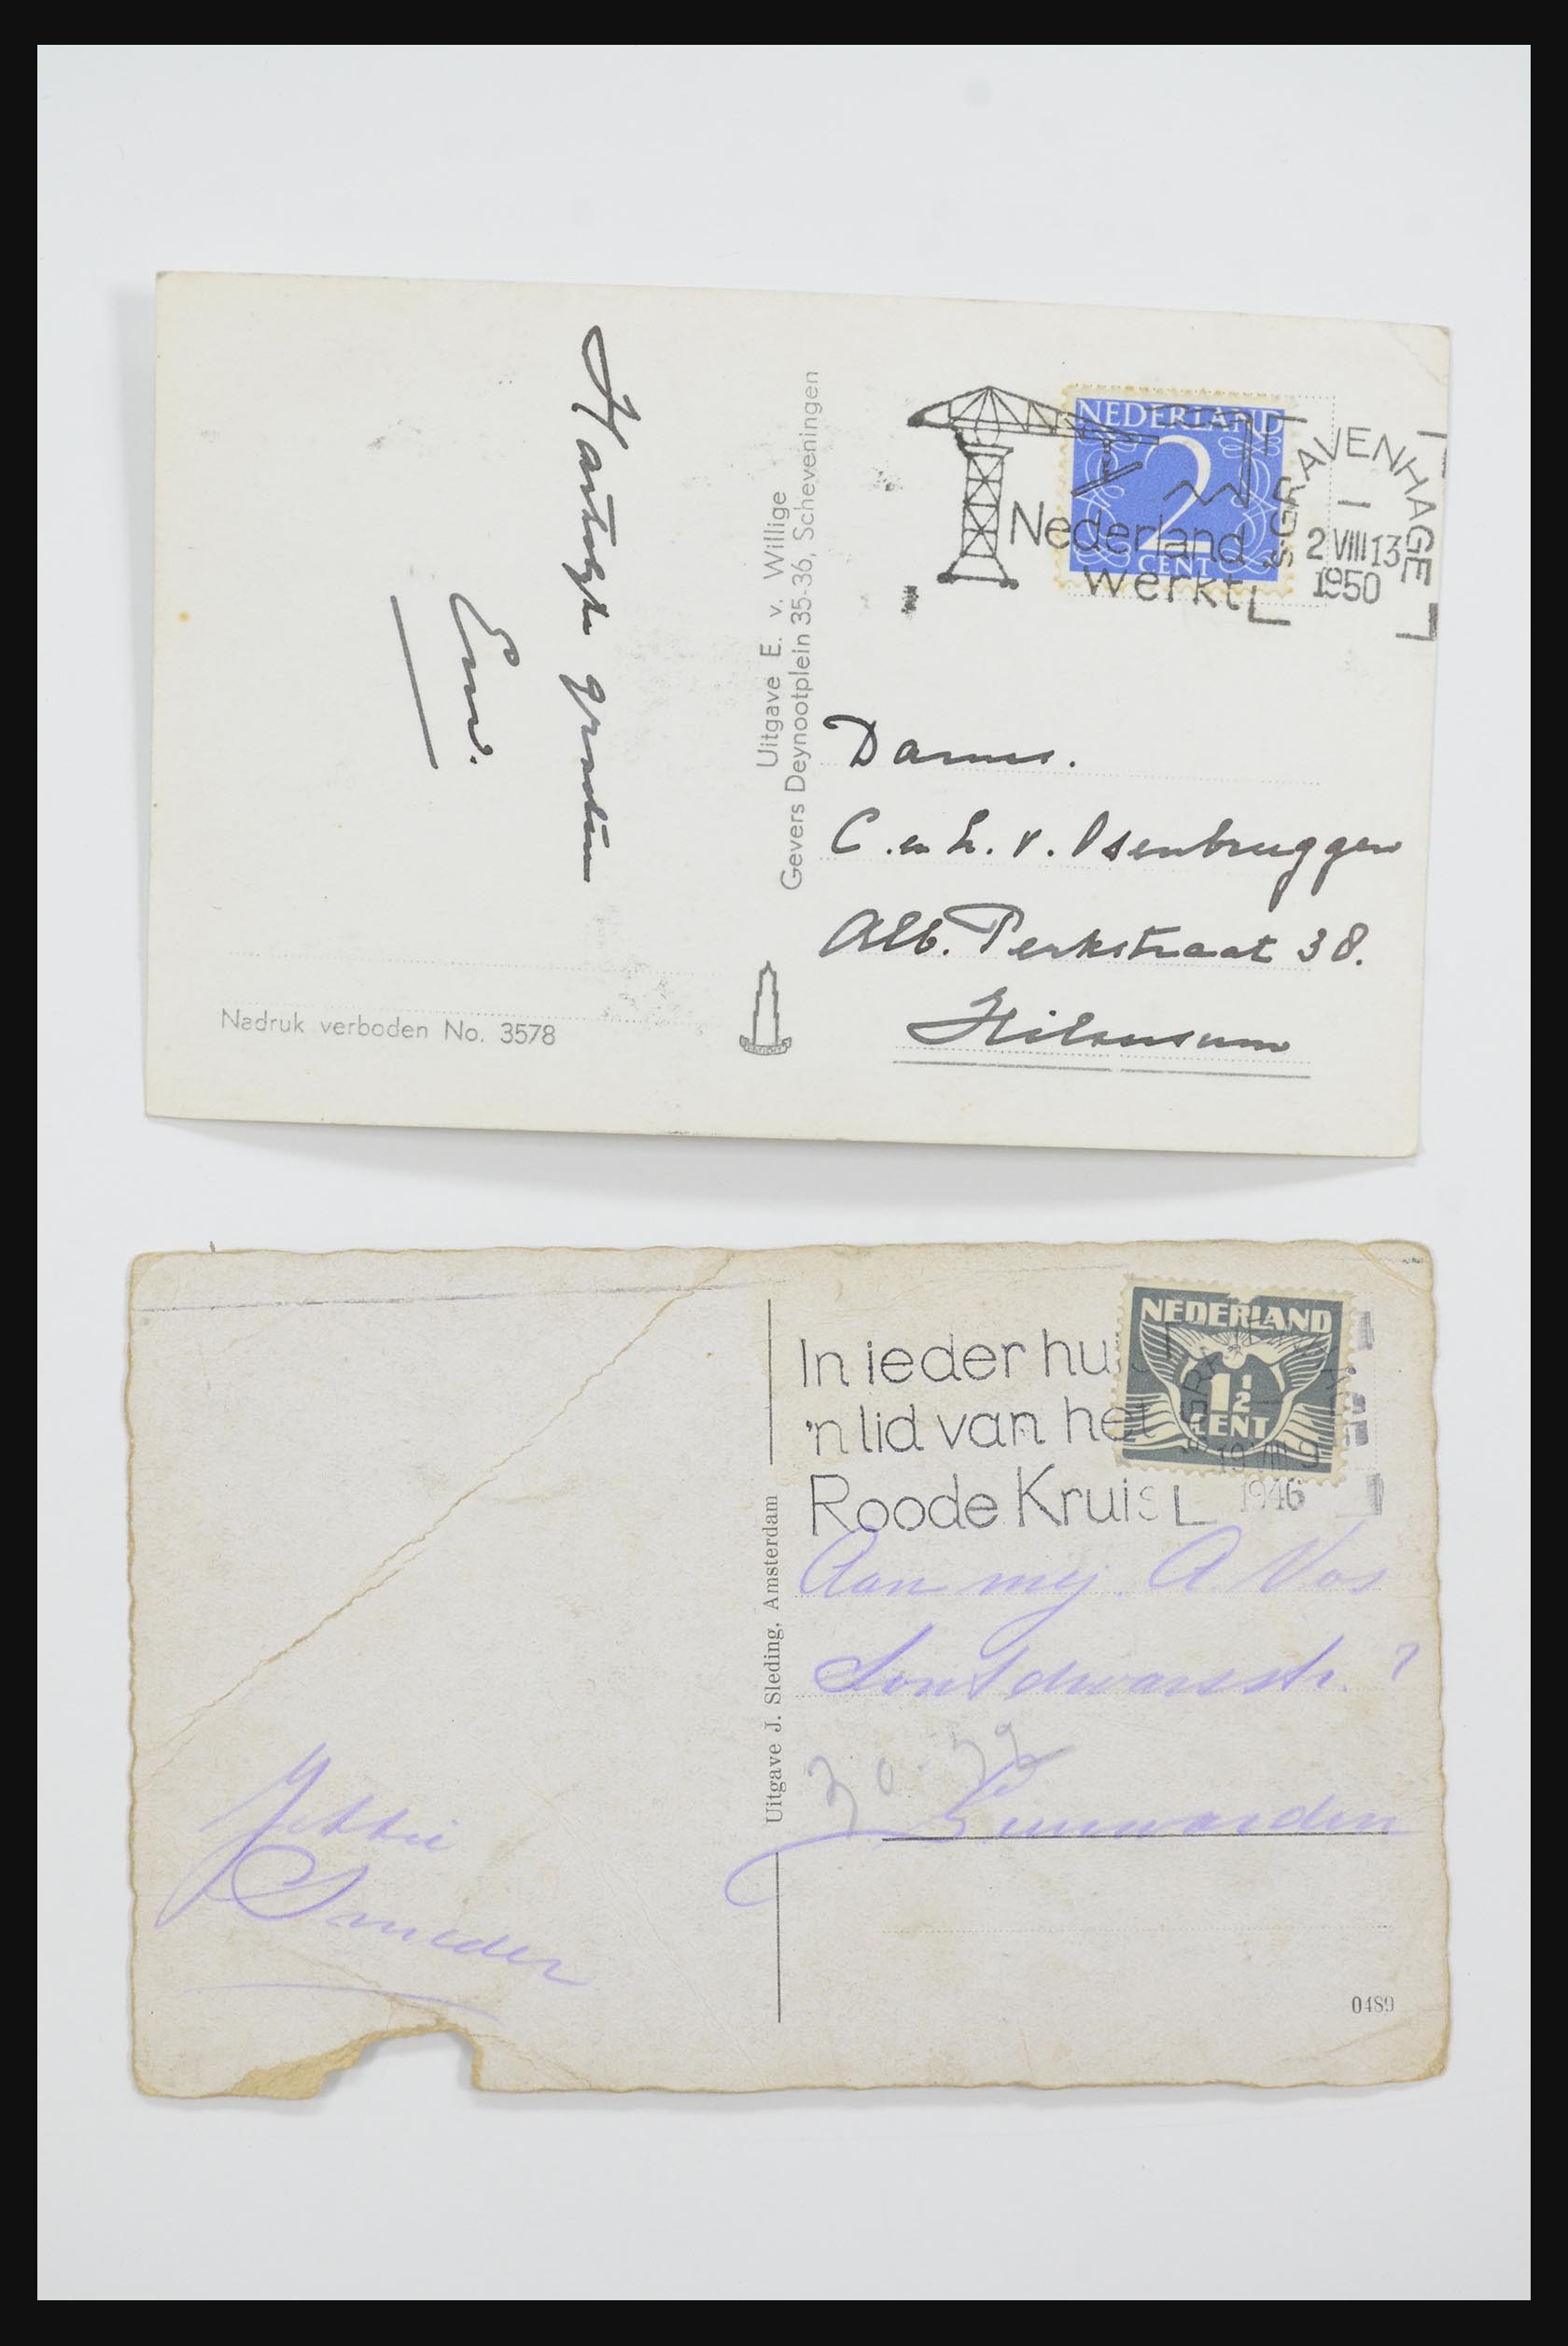 Hartelijke groeten
Nadruk verboden No. 3578
Uitgave E. v. Willige
Gevers Deynootplein 35-36, Scheveningen
NEDERLAND
2
CENT
Nederland
werkt
'S GRAVENHAGE
2 VIII 13
1950
Dames.
C. en L. v. Isenbruggen
Alb. Perkstraat 38.
Hilversum
Uitgave J. Sleding, Amsterdam
In ieder huis
'n lid van het
Roode Kruis
NEDERLAND
1½
CENT
19 VIII 9
1946
Aan mej. A Vos
Leeuwarden
0489